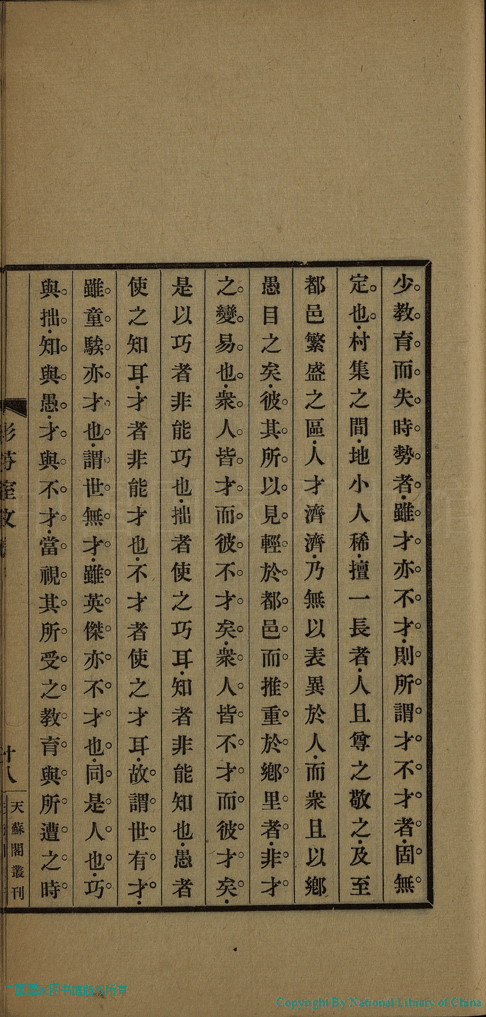 少教育而失時勢者雖才亦不才則所謂才不才者固無
定也村集之間地小人稀擅一長者人且尊之敬之及至
都邑繁盛之區人才濟濟乃無以表異於人而衆且以鄉
愚目之矣彼其所以見輕於都邑而推重於鄉里者非才
之變易也衆人皆才而彼不才矣衆人皆不才而彼才矣
是以巧者非能巧也拙者使之巧耳知者非能知也愚者
使之知耳才者非能才也不才者使之才耳故謂世有才
雖童騃亦才也謂世無才雖英傑亦不才也同是人也巧
與拙知與愚才與不才當視其所受之教育與所遭之時
十八
天蘇閣叢刊
Copyright By National Library of China